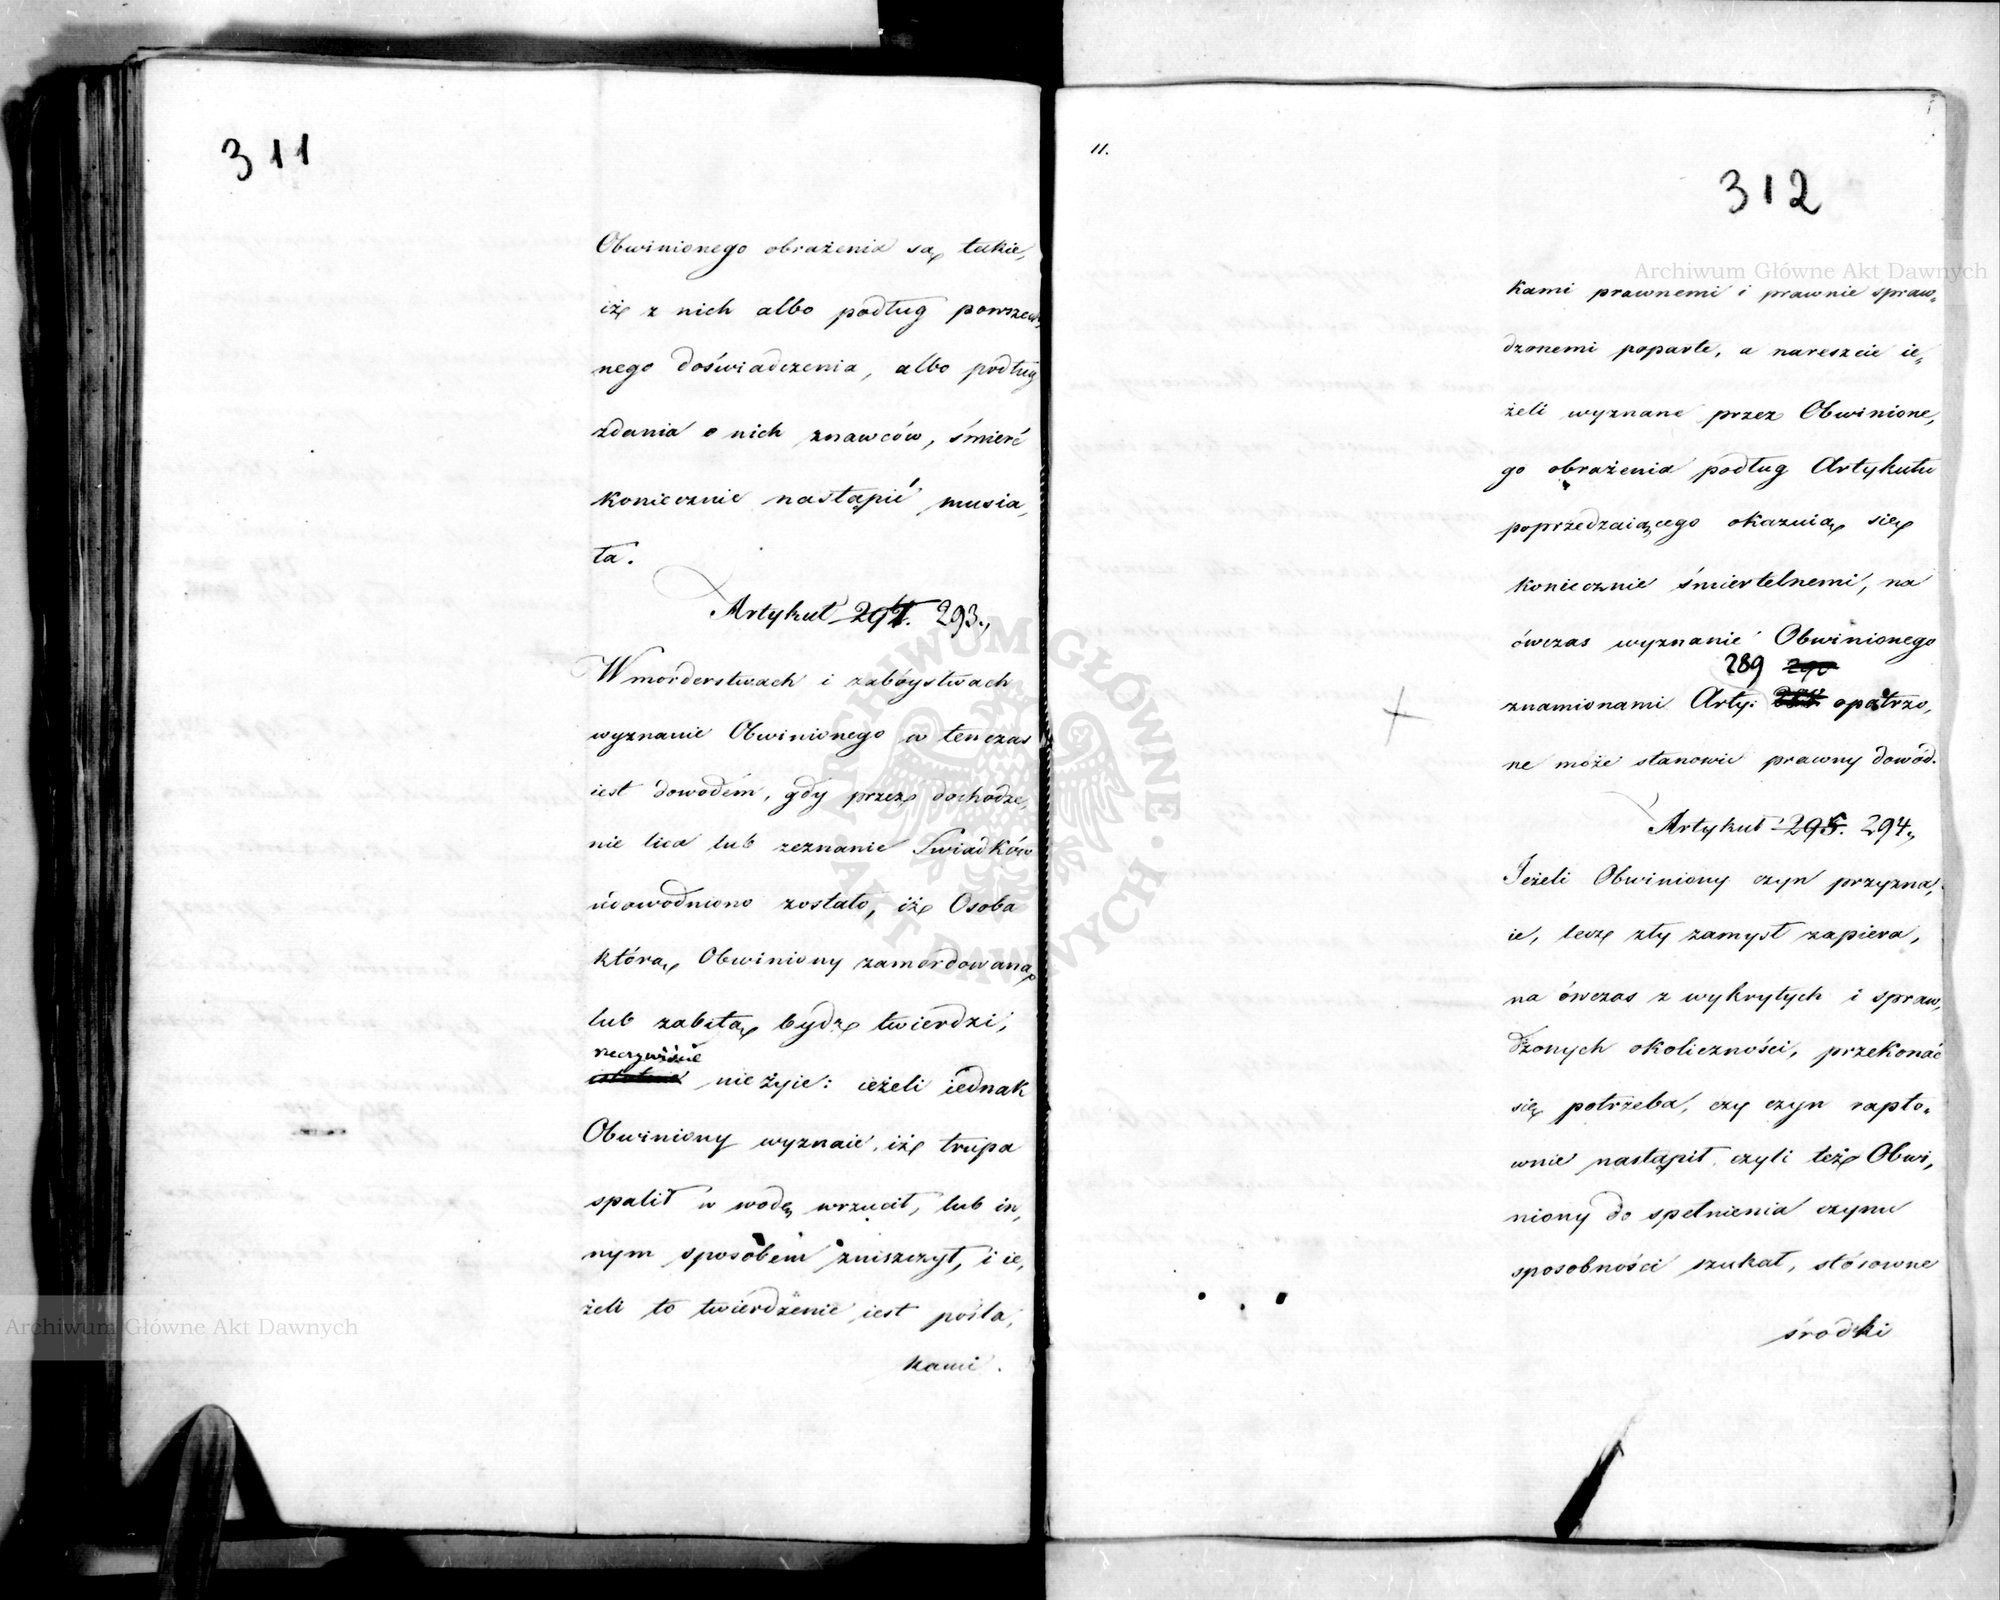 311
Obwinionego obrażenia są takie,
iż z nich albo podług powszech„
nego doświadczenia, albo podług
zdania o nich znawców, śmierć
koniecznie nastąpić musia„
ła.
Artykuł 294. 293.,
W morderstwach i zabóystwach
wyznanie Obwinionego w ten czas
iest dowodem, gdy przez dochodze„
nie lica lub zeznanie Swiadków
udowodniono zostało, iż Osoba
którą Obwiniony zamordowaną
lub zabitą bydź twierdzi,
rzeczywiście
istotnie nie żyie: ieżeli iednak
Obwiniony wyznaie, iż trupa
spalił w wodę wrzucił, lub in„
nym sposobem zniszczył, i ie„
żeli to twierdzenie iest poszla„
kami.
11.
312
kami prawnemi i prawnie spraw„
dzonemi poparte, a nareszcie ie„
żeli wyznane przez Obwinione„
go obrażenia podług Artykułu
poprzedzaiącego okazuią się
koniecznie śmiertelnemi, na
ówczas wyznanie Obwinionego
289 290
znamionami Arty: opatrzo„
ne może stanowić prawny dowód.
Artykuł 295. 294.,
Jeżeli Obwiniony czyn przyzna„
ie, lecz zły zamysł zapiera,
na ówczas z wykrytych i spraw„
dzonych okoliczności, przekonać
się potrzeba, czy czyn rapto„
wnie nastąpił, czyli też Obwi„
niony do spełnienia czynu
sposobności szukał, stósowne
środki
Archiwum Główne Akt Dawnych
Archiwum Główne Akt Dawnych
ARCHIWUM GŁÓWNE AKT DAWNYCH